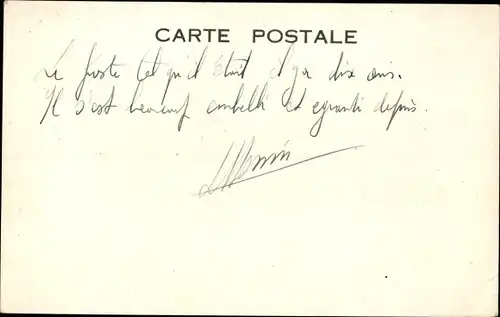 CARTE POSTALE
Le poste tel qu'il était il y a dix ans.
Il s'est beaucoup embelli et agrandi depuis.